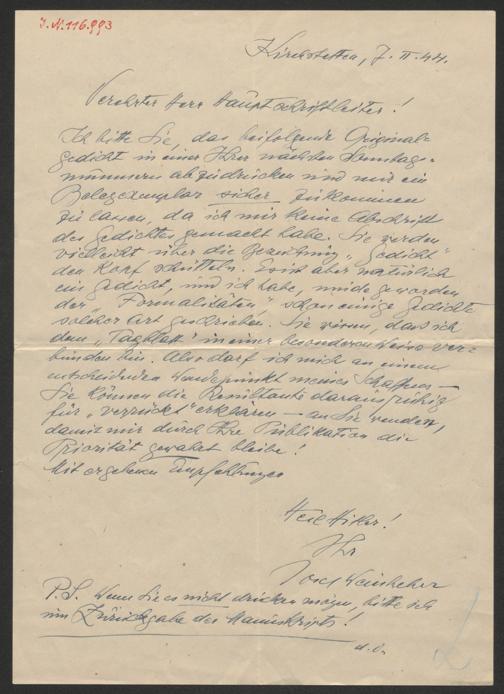 J. N. 116.993
Kirchstetten, 7. II. 44.
Verehrter Herr Hauptschriftleiter!
Ich bitte Sie, das beifolgende Original-
gedicht in einer Ihrer nächsten Sonntags-
nummern abzudrucken und mir ein
Belegexemplar sicher zukommen
zu lassen, da ich mir keine Abschrift
des Gedichtes gemacht habe. Sie werden
vielleicht über die Bezeichnung „Gedicht"
den Kopf schütteln. Es ist aber natürlich
ein Gedicht, und ich habe, müde geworden
der „Formalitäten", schon einige Gedichte
solcher Art geschrieben. Sie wissen, dass ich
dem „Tagblatt" in einer besonderen Weise ver-
bunden bin. Also darf ich mich an einem
entscheidenden Wendepunkt meines Schaffens —
Sie können die Resultante daraus ruhig
für „verrückt" erklären — an Sie wenden,
damit mir durch Ihre Publikation die
Priorität gewahrt bleibe!
Mit ergebenen Empfehlungen
Heil Hitler!
Ihr
Josef Weinheber
P.S. Wenn Sie es nicht drucken mögen, bitte ich
um Zurückgabe des Manuskripts!
d. O.